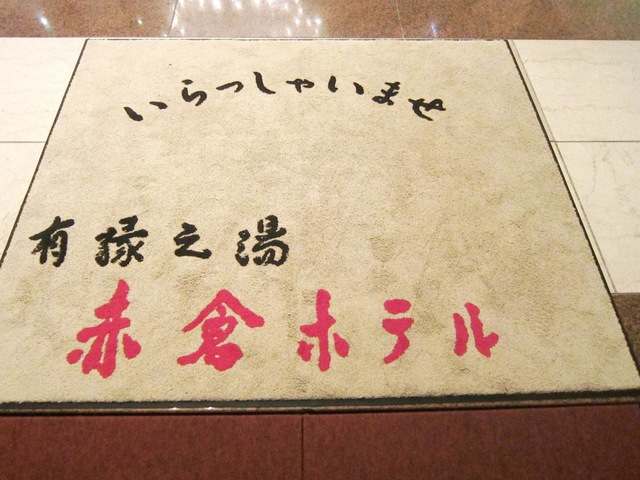 いらっしゃいませ
有縁之湯
赤倉ホテル